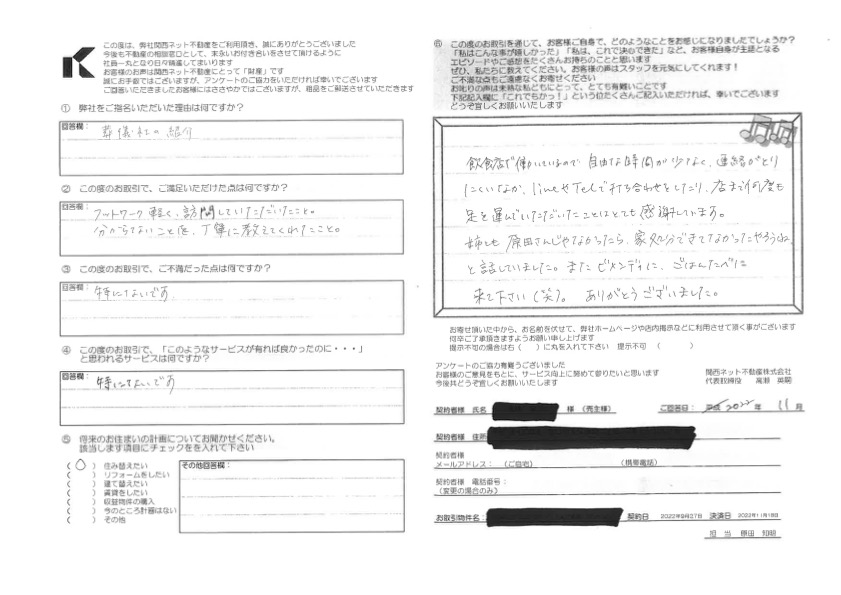 この度は、弊社関西ネット不動産をご利用頂き、誠にありがとうございました
今後も不動産の相談窓口として、末永いお付き合いをさせて頂けるように
社員一丸となり日々精進してまいります
お客様のお声は関西ネット不動産にとって「財産」です
誠にお手数ではございますが、アンケートのご協力をいただければ幸いでございます
ご回答いただきましたお客様にはささやかではございますが、粗品をご郵送させていただきます
① 弊社をご指名いただいた理由は何ですか？
回答欄：
葬儀社の紹介
② この度のお取引で、ご満足いただけた点は何ですか？
回答欄：
フットワーク軽く、訪問していただいたこと。
分からないことを、丁寧に教えてくれたこと。
③ この度のお取引で、ご不満だった点は何ですか？
回答欄：
特にないです
④ この度のお取引で、「このようなサービスが有れば良かったのに・・・」
と思われるサービスは何ですか？
回答欄：
特にないです
⑤ 将来のお住まいの計画についてお聞かせください。
該当します項目にチェックをを入れて下さい
（ ○ ） 住み替えたい
（ ） リフォームをしたい
（ ） 建て替えたい
（ ） 賃貸をしたい
（ ） 収益物件の購入
（ ） 今のところ計画はない
（ ） その他
その他回答欄：
⑥ この度のお取引を通じて、お客様ご自身で、どのようなことをお感じになりましたでしょうか？
「私はこんな事が嬉しかった」「私は、これで決心できた」など、お客様自身が主語となる
エピソードやご感想をたくさんお持ちのことと思います
ぜひ、私たちに教えてください。お客様の声はスタッフを元気にしてくれます！
ご不満な点もご遠慮なくお寄せください
お叱りの声は未熟な私どもにとって、とても有難いことです
下記記入欄に「これでもかっ！」という位たくさんご記入いただければ、幸いでございます
どうぞ宜しくお願いいたします
飲食店で働いているので自由な時間が少なく、連絡がとり
にくいなか、lineやTelで打ち合わせをしたり、店まで何度も
足を運んでいただいたことはとても感謝しています。
姉も原田さんじゃなかったら、家処分できてなかったやろうね
と話していました。またビメンディに、ごはんたべに
来て下さい（笑）。ありがとうございました。
お寄せ頂いた中から、お名前を伏せて、弊社ホームページや店内掲示などに利用させて頂く事がございます
何卒ご了承頂きますようお願い申し上げます
掲示不可の場合は右（ ）に丸を入れて下さい 掲示不可 （ ）
アンケートのご協力有難うございました
お客様のご意見をもとに、サービス向上に努めて参りたいと思います
今後共どうぞ宜しくお願いいたします
関西ネット不動産株式会社
代表取締役 高瀬 英嗣
契約者様 氏名 様 （売主様） ご回答日： 平成 2022 年 11 月
契約者様 住所
契約者様
メールアドレス： （ご自宅） （携帯電話）
契約者様 電話番号：
（変更の場合のみ）
お取引物件名： 契約日 2022年9月27日 決済日 2022年11月18日
担 当 原田 知明